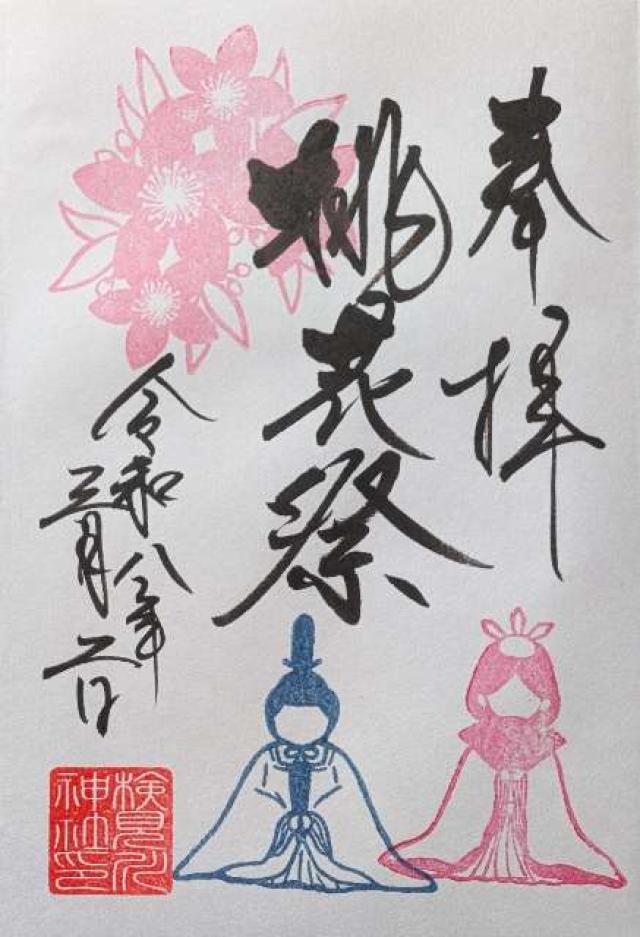 奉拝
桃花祭
令和八年
三月二日
検見川
神社印